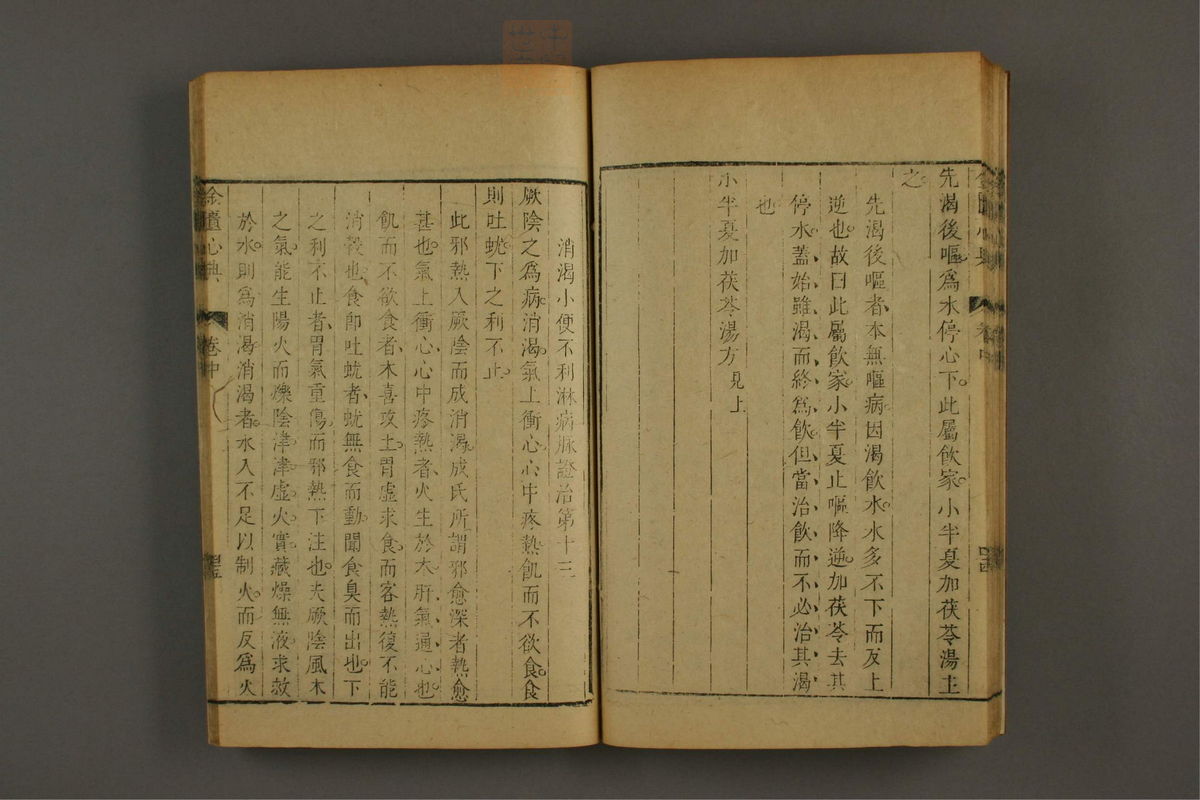 金匱心典 卷中 四十四
先渴後嘔爲水停心下此屬飲家小半夏加茯苓湯主
之
先渴後嘔者本無嘔病因渴飲水水多不下而反上
逆也故曰此屬飲家小半夏止嘔降逆加茯苓去其
停水蓋始雖渴而終爲飲但當治飲而不必治其渴
也
小半夏加茯苓湯方見上
消渴小便不利淋病脉證治第十三
厥陰之爲病消渴氣上衝心心中疼熱飢而不欲食食
則吐蚘下之利不止
此邪熱入厥陰而成消渴成氏所謂邪愈深者熱愈
甚也氣上衝心心中疼熱者火生於木肝氣通心也
飢而不欲食者木喜攻土胃虛求食而客熱復不能
消穀也食卽吐蚘者蚘無食而動聞食臭而出也下
之利不止者胃氣重傷而邪熱下注也夫厥陰風木
之氣能生陽火而爍陰津津虛火實藏燥無液求救
於水則爲消渴消渴者水入不足以制火而反爲火
金匱心典 卷中